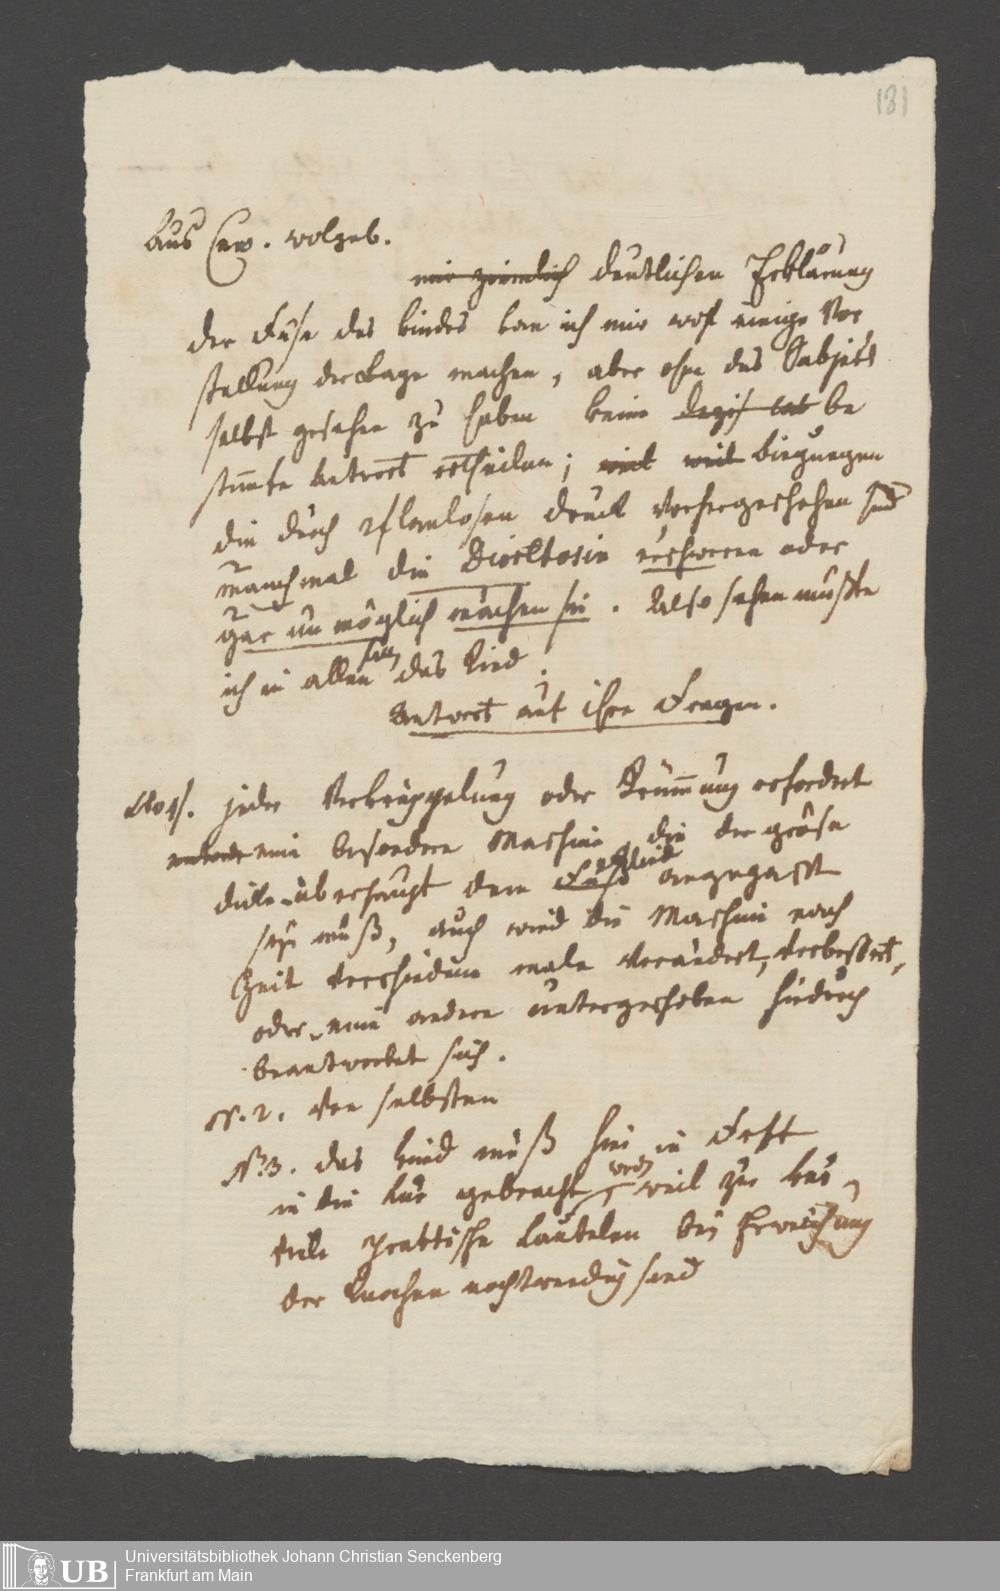 181
Aus Ew. wolgeb.
mir ziemlich deutlichen Erklärung
der Füse des Kindes kan ich mir wohl einige Vor
stellung der Lage machen, aber ohne das Subject
selbst gesehen zu haben keine be
stimte Antwort ertheilen; weil Biegungen
die durch Druck vorhergeschehen sind
manchmal die erschweren oder
gar unmöglich machen . Also sehen müßte
ich in allen das Kind.
Antwort auf ihre Fragen.
No 1. jede Verkrüppelung oder Krümmung erfordert
eine besondere Maschine, die der gröse
überhaupt dem angepasst
seyn muß, auch wird die Maschine nach
Zeit verschiedene male verändert, verbessert,
oder eine andere untergeschoben hiedurch
beantwortet sich.
N. 2. von selbsten
N. 3. das Kind muß hier in Frft
in die Kur gebracht werden weil zur Kur
viele praktische Cautelen bey Erweichung
der Knochen nothwendig sind
Universitätsbibliothek Johann Christian Senckenberg
Frankfurt am Main
UB